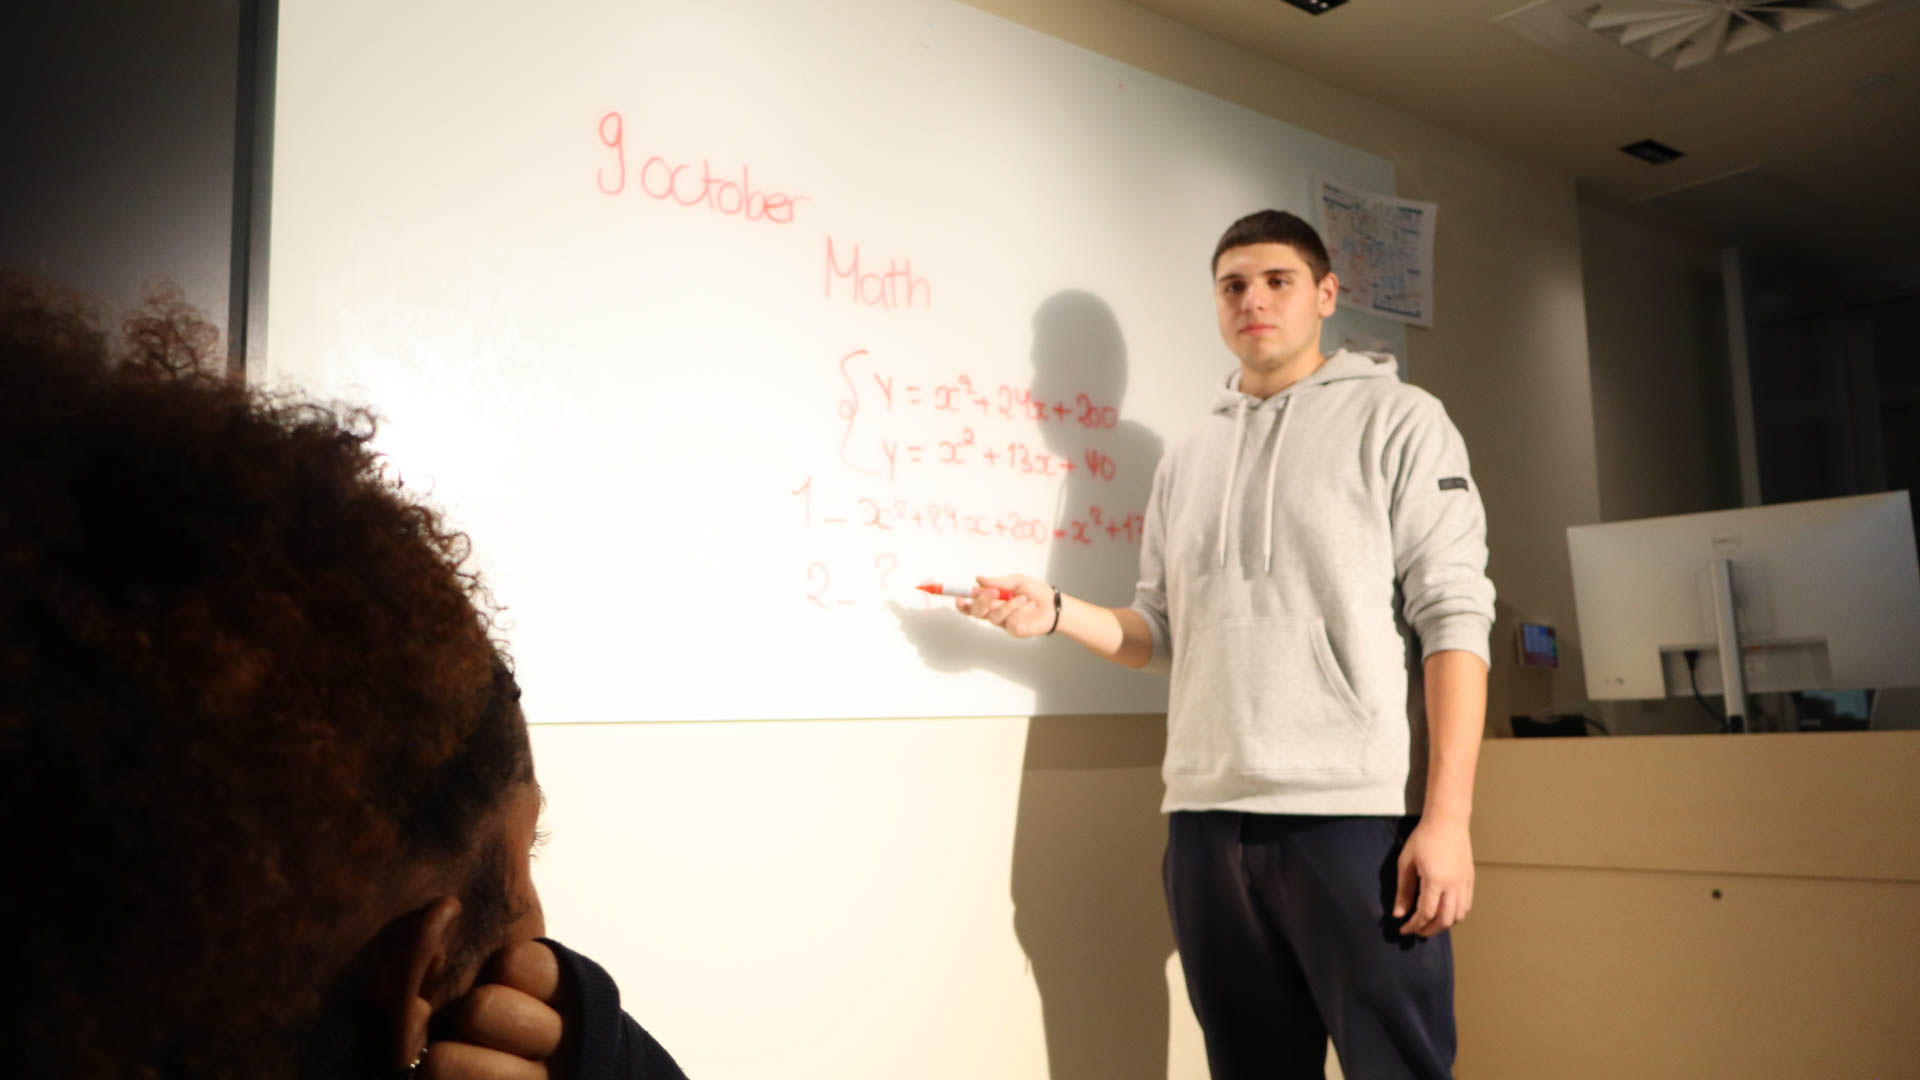 9 october
Math
y = x²+24x+200
y = x²+13x+40
1 - x²+24x+200 = x²+13
2 - ?